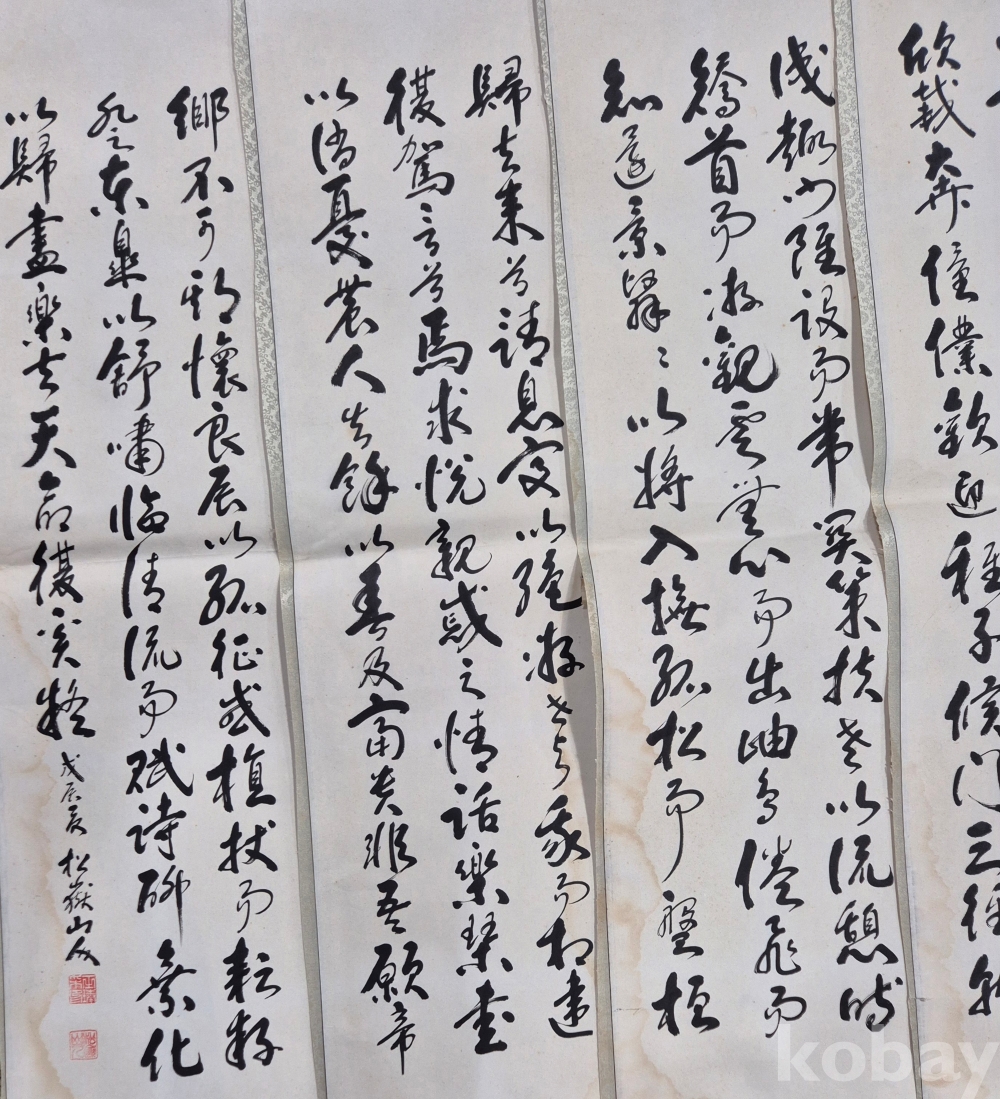 欣載奔僮僕歡迎稚子候門三徑就
成趣門雖設而常関策扶老以流憩時
矯首而游觀雲無心而出岫鳥倦飛而
知還景翳〻以將入撫孤松而盤桓
歸去來兮請息交以絶游世與我而相遺
復駕言兮焉求悅親戚之情話樂琴書
以消憂農人告餘以春及富貴非吾願帝
鄉不可期懷良辰以孤征或植杖而耘耔
登東皐以舒嘯臨清流而賦詩聊乘化
以歸盡樂夫天命復奚疑
戊辰夏 松嶽山人
kobay